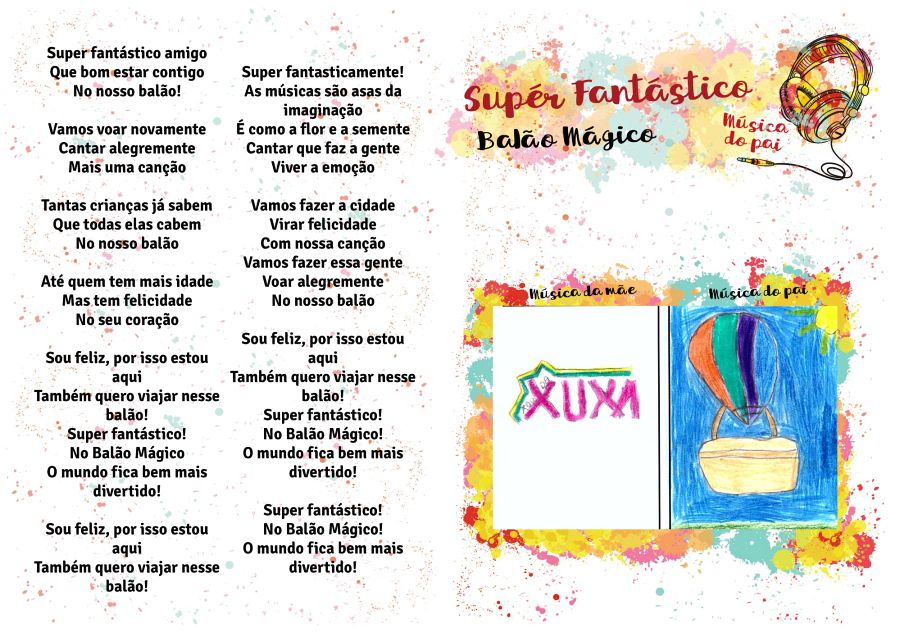 Super fantástico amigo
Que bom estar contigo
No nosso balão!
Vamos voar novamente
Cantar alegremente
Mais uma canção
Tantas crianças já sabem
Que todas elas cabem
No nosso balão
Até quem tem mais idade
Mas tem felicidade
No seu coração
Sou feliz, por isso estou
aqui
Também quero viajar nesse
balão!
Super fantástico!
No Balão Mágico
O mundo fica bem mais
divertido!
Sou feliz, por isso estou
aqui
Também quero viajar nesse
balão!
Super fantasticamente!
As músicas são asas da
imaginação
É como a flor e a semente
Cantar que faz a gente
Viver a emoção
Vamos fazer a cidade
Virar felicidade
Com nossa canção
Vamos fazer essa gente
Voar alegremente
No nosso balão
Sou feliz, por isso estou
aqui
Também quero viajar nesse
balão!
Super fantástico!
No Balão Mágico!
O mundo fica bem mais
divertido!
Super fantástico!
No Balão Mágico!
O mundo fica bem mais
divertido!
Supér Fantástico
Balão Mágico
Música
do pai
Música da mãe
Música do pai
XUXA